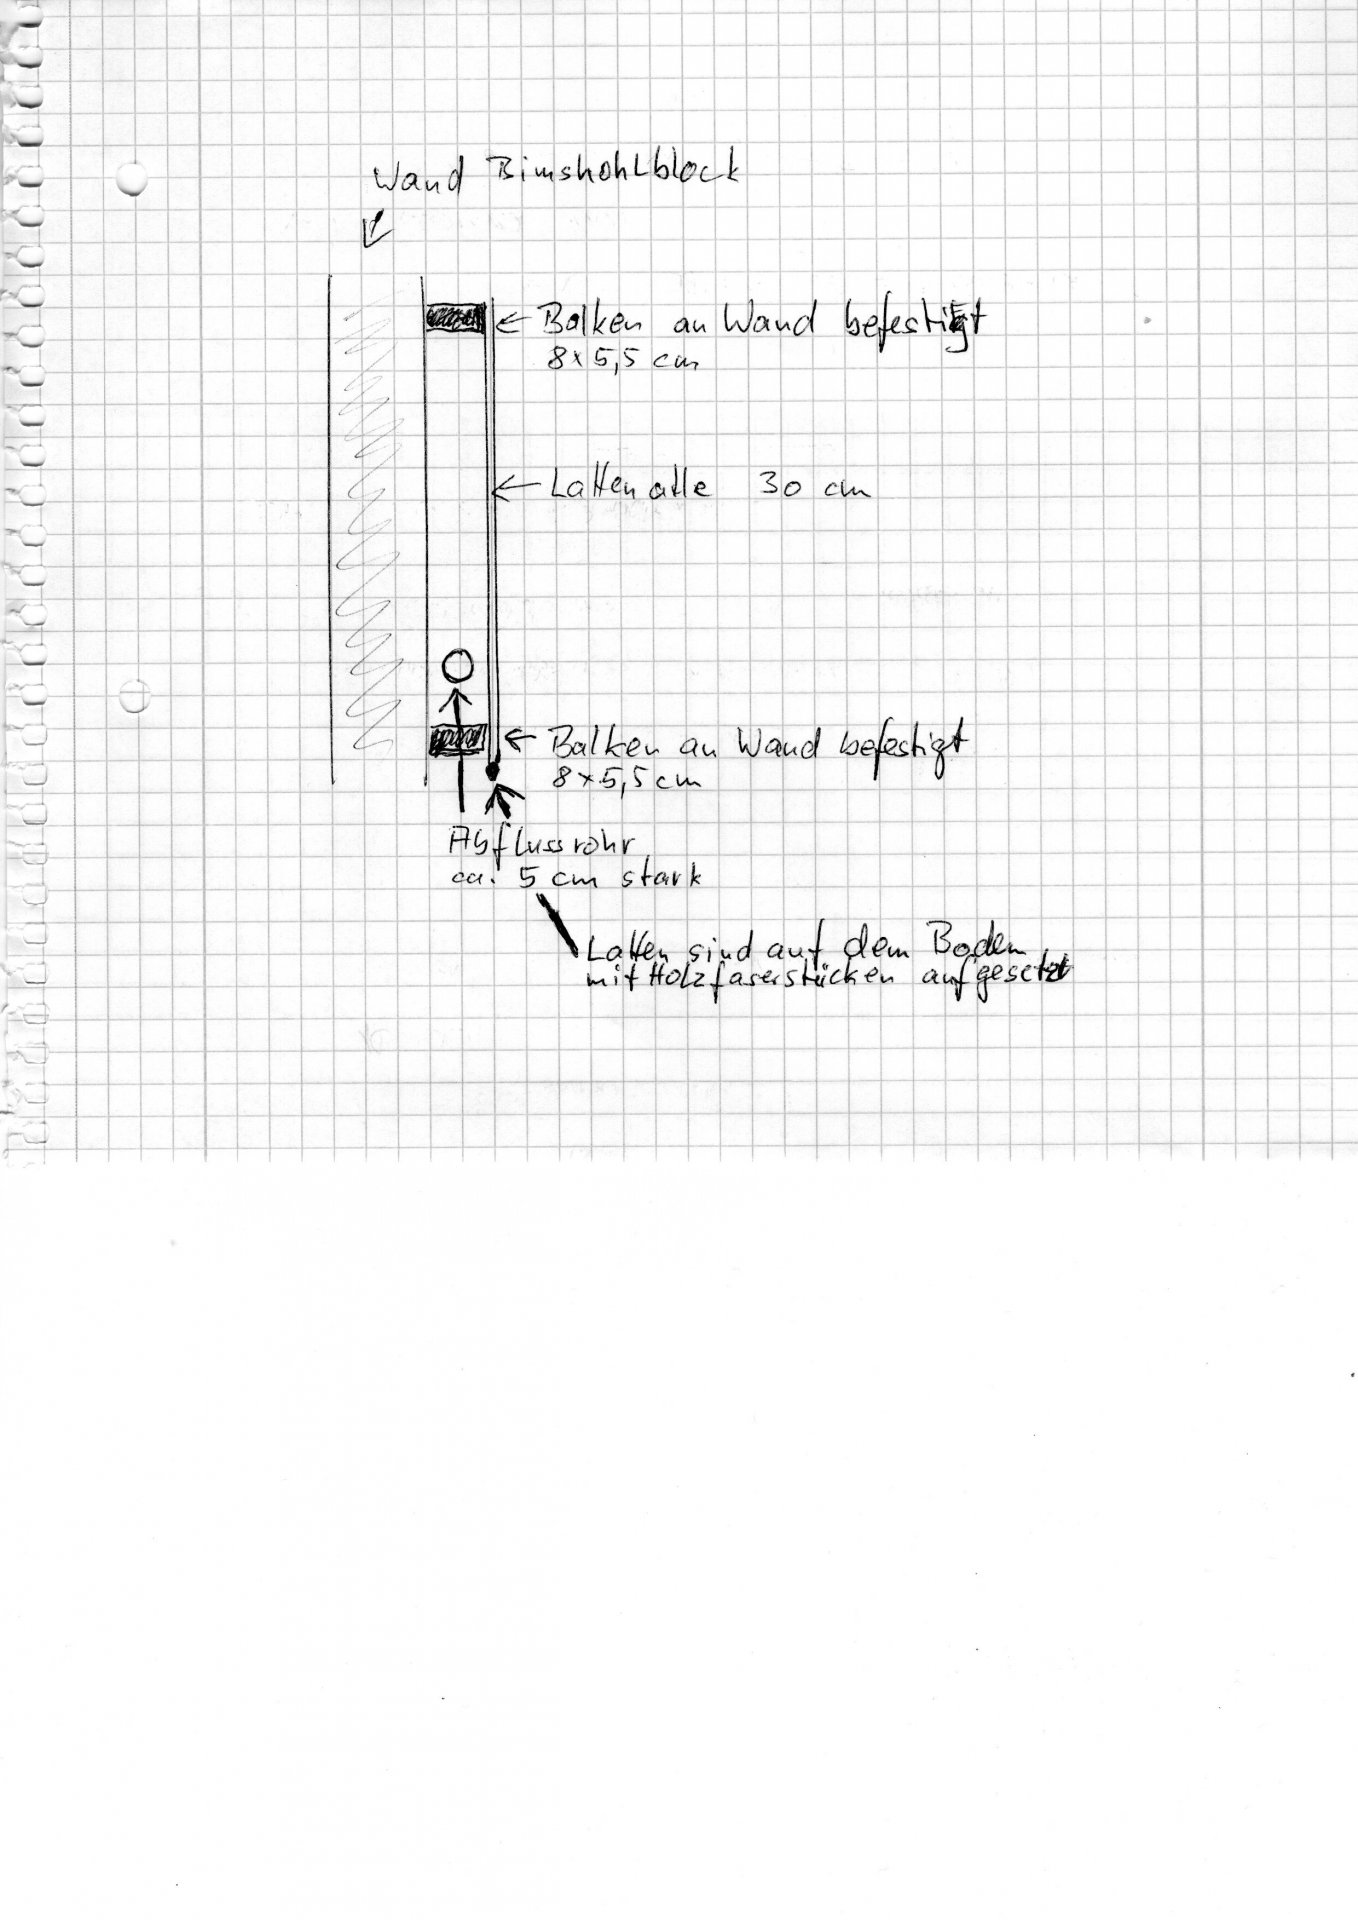 Wand Bimshohlblock
Balken an Wand befestigt
8x5,5 cm
Latten alle 30 cm
Balken an Wand befestigt
8x5,5 cm
Abflussrohr
ca. 5 cm stark
Latten sind auf dem Boden
mit Holzfaserstücken aufgesetzt